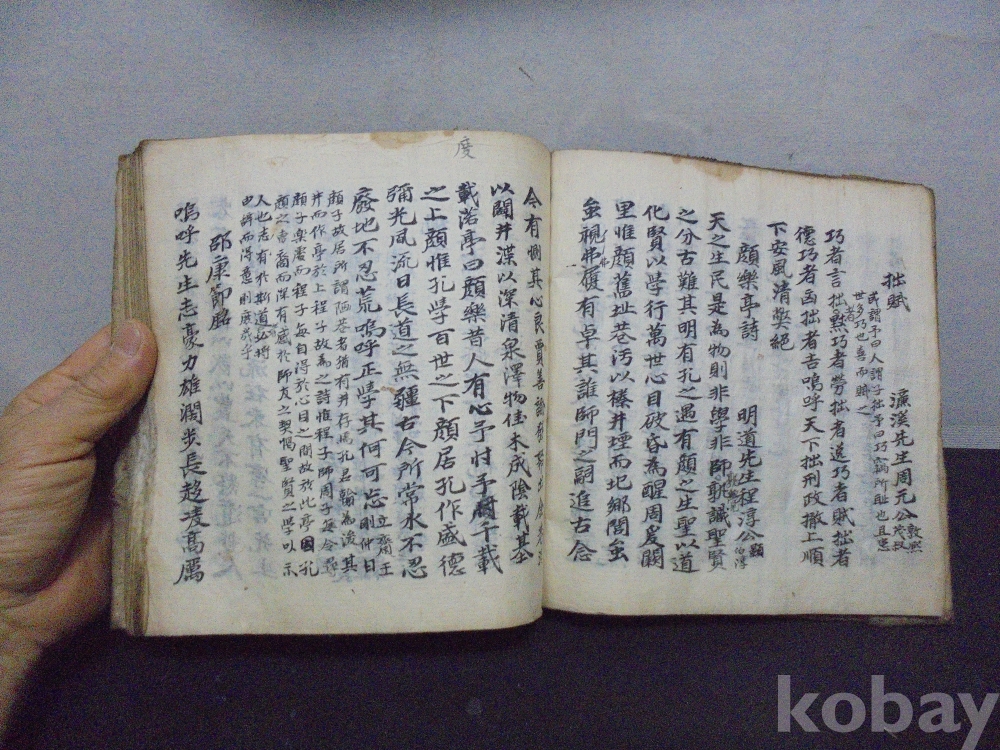 拙賦 濂溪先生周元公敦頤茂叔
或謂予曰人謂子拙予曰巧竊所恥也且患
世多巧也喜而賦之
巧者言拙者黙巧者勞拙者逸巧者賊拙者
德巧者凶拙者吉嗚呼天下拙刑政撤上順
下安風清弊絕
顔樂亭詩 明道先生程淳公顥伯淳
天之生民是為物則非學非師孰覺孰識聖賢
之分古難其明有孔之遇有顔之生聖以道
化賢以學行萬世心目破昏為醒周爰闕
里惟顔舊址巷汚以榛井堙而圮鄉閭蚩
蚩視弗履有卓其誰師門之嗣追古念
今有惻其心良賈善諭發
以闢井渫以深清泉澤物佳木成陰載基
載落亭曰顔樂昔人有心予忖予度千載
之上顔惟孔學百世之下顔居孔作盛德
彌光風流日長道之無疆古今所常水不忍
廢地不忍荒嗚呼正學其何可忘
顔子故居所謂陋巷者猶有井存焉孔君翰為浚其
井而作亭於上程子故為之詩惟程子師周子每令尋
顔子樂處而程子每自得於心目之間故於此亭
人也志有於斯道必將
邵康節銘
嗚呼先生志豪力雄濶步長趍凌高厲
度
kobay